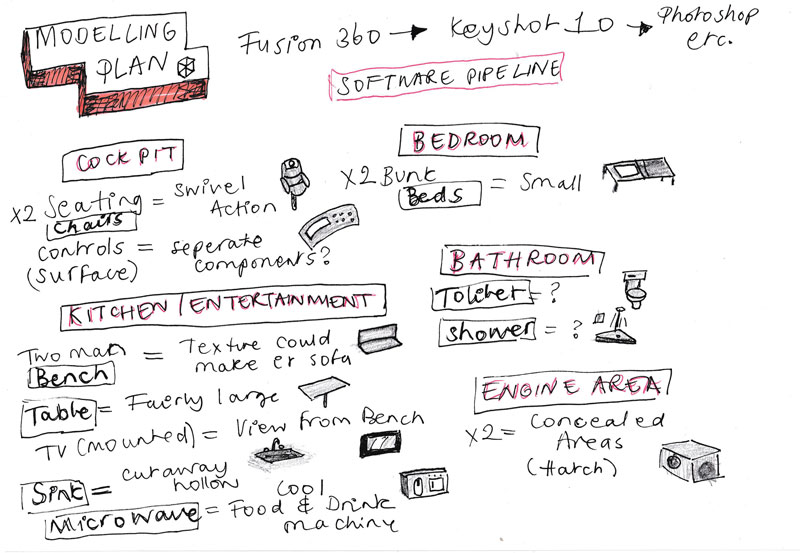 MODELLING
PLAN
Fusion 360 → Keyshot 10 → Photoshop
etc.
SOFTWARE PIPELINE
COCKPIT
x2 Seating = Swivel
Chairs Action
controls = seperate
(surface) components?
BEDROOM
x2 Bunk
Beds = Small
BATHROOM
Toliter = ?
Shower = ?
KITCHEN/ENTERTAINMENT
Two man = Texture could
Bench make er sofa
Table = Fairly large
TV (mounted) = View from Bench
Sink = cut away
hollow
Microwave = Food & Drink
cool machine
ENGINE AREA
x2 = Concealed
Areas
(Hatch)